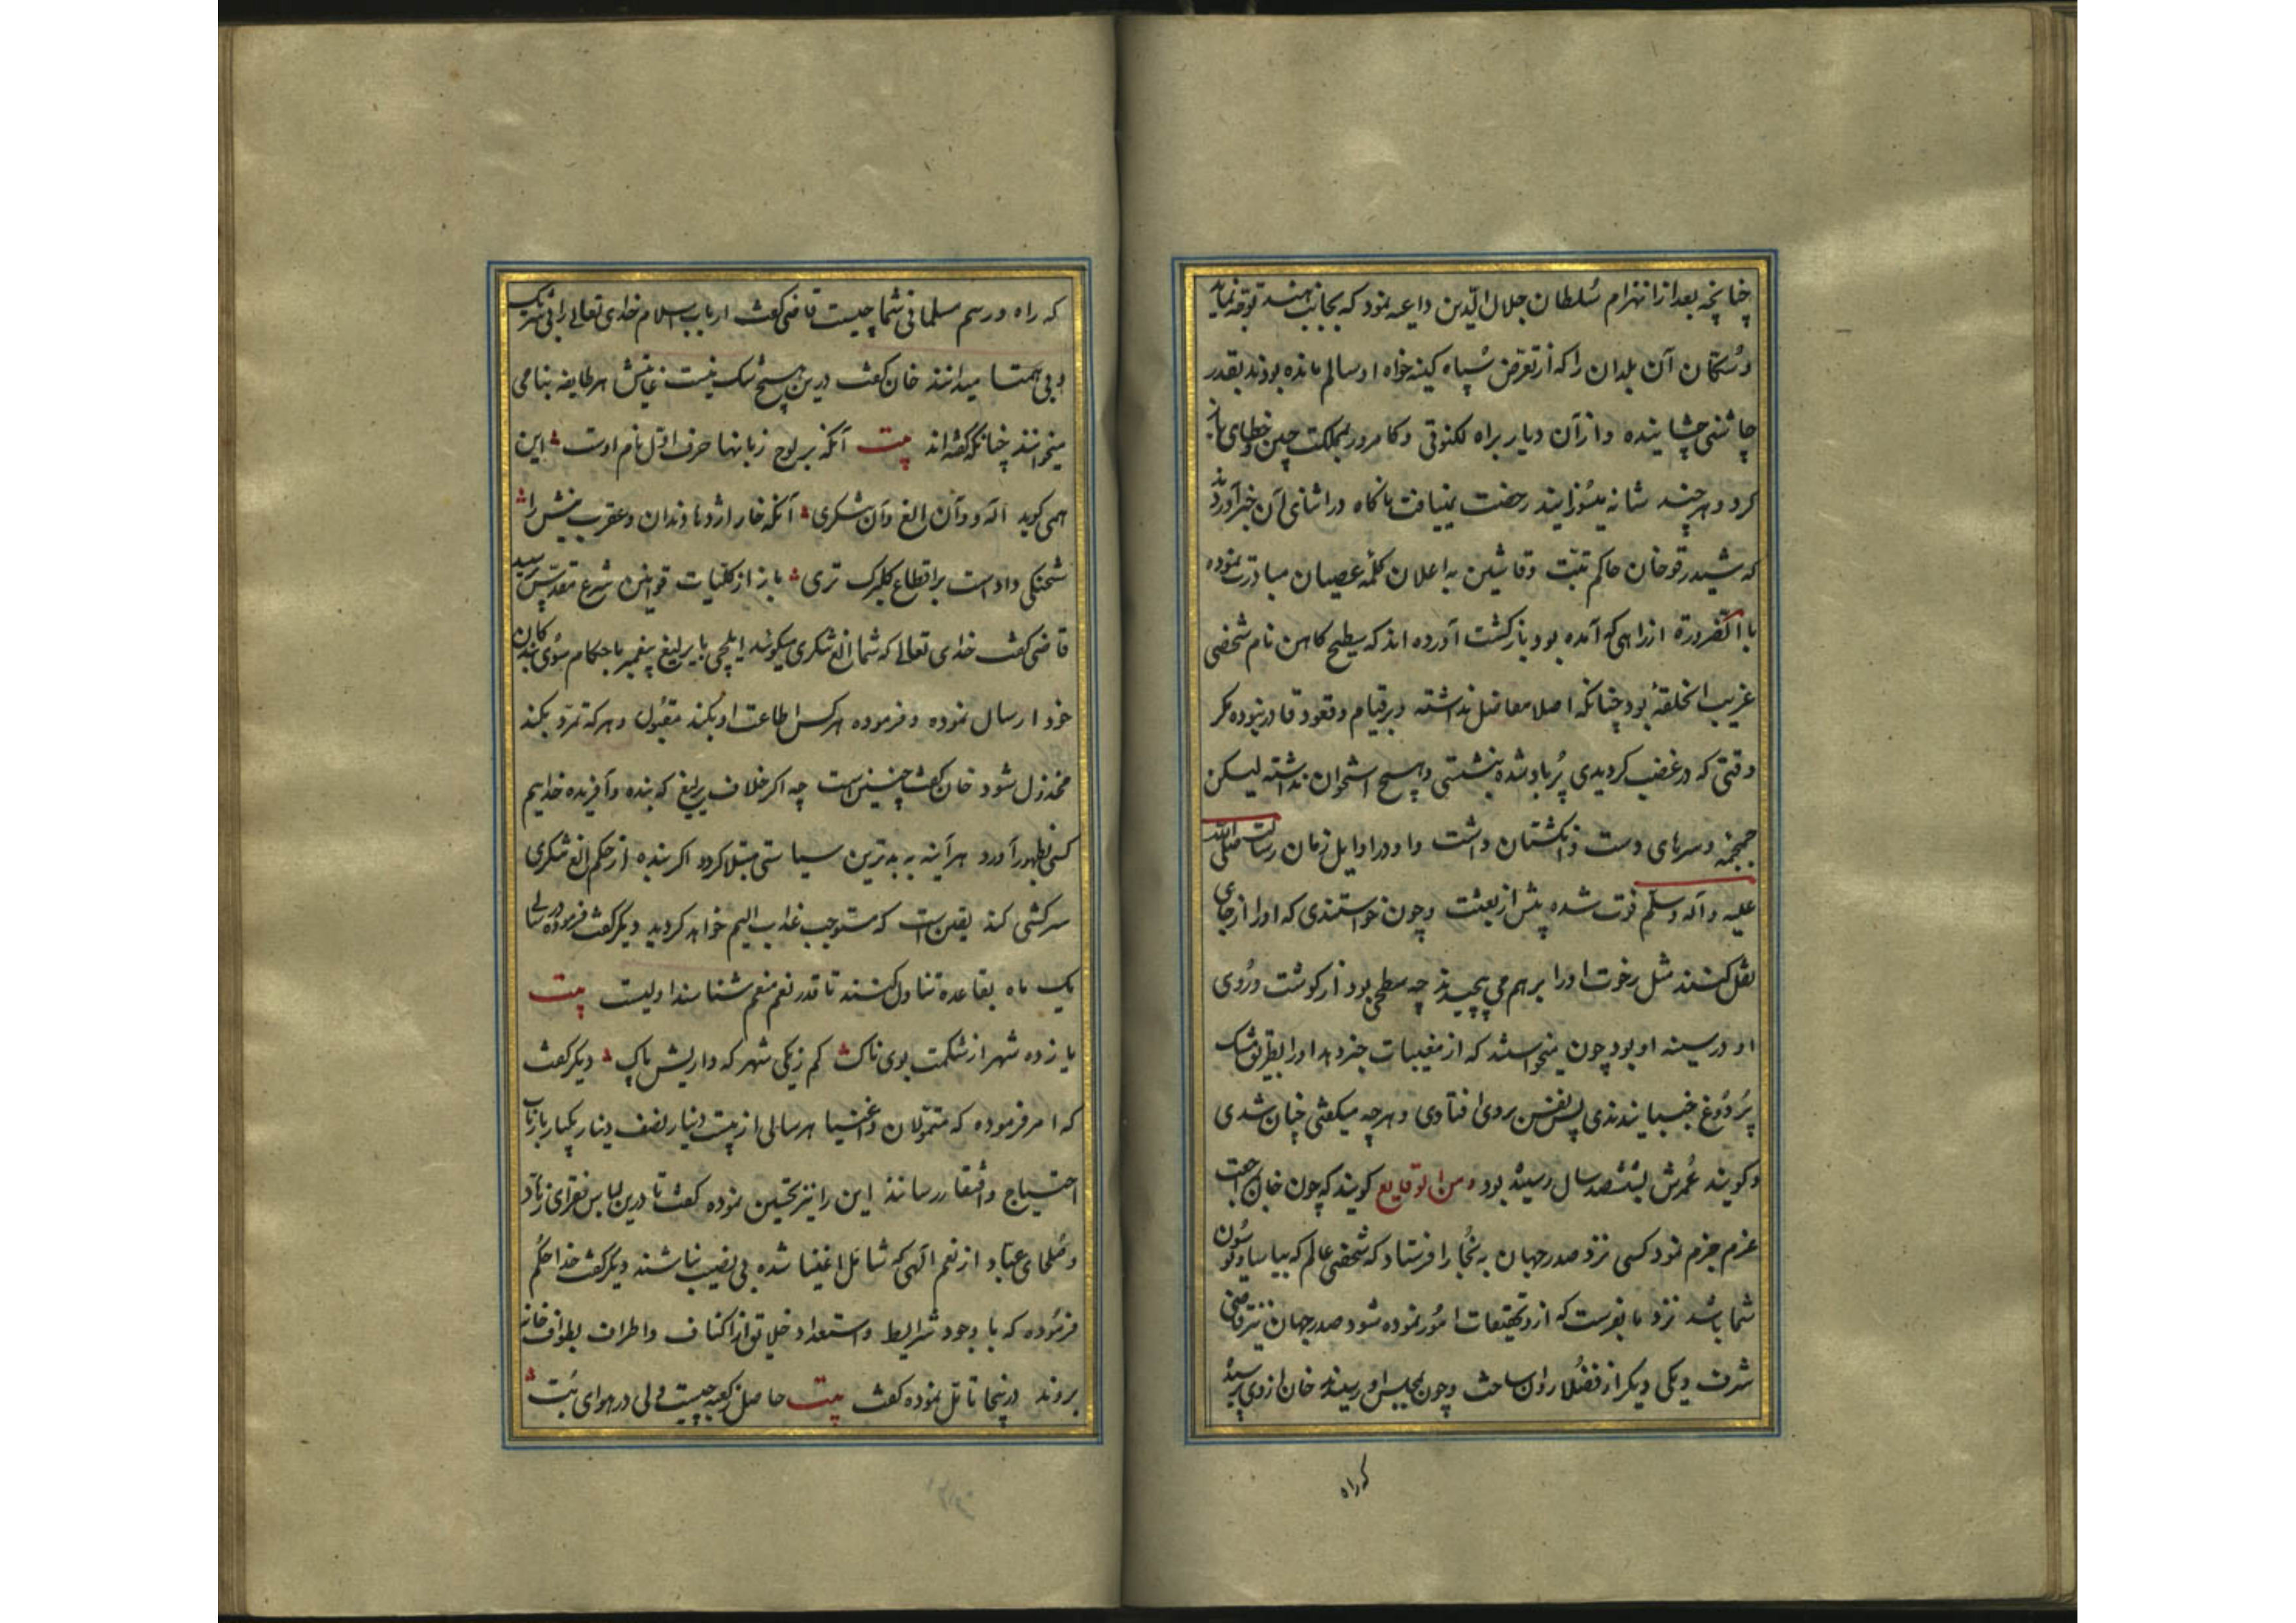 چنانچه بعد از انهزام سُلطان جلال الدّین داعیه نمود که بجانب هند توجّه نماید
و سُکّان آن بلدان را که از تعرّض سپاه کینه خواه او سالم مانده بودند بقدر
چاشنی چشانیده و از آن دیار براه لکنوتی و کامرور بمملکت چین و خطای باز
کرد و هر چند شانه میسُوزانیدند رخصت نمییافت ناگاه در اثنای آن خبر آوردند
که شیدرقو خان حاکم تبّت و قاشین به اعلان کلمهٔ عصیان مبادرت نموده
باالضّرورة از راهی که آمده بود بازگشت آورده اند که سطیح کاهن نام شخصی
غریب الخلقهٔ بود چنانکه اصلا مفاصل نداشته و بر قیام و قعود قادر نبوده مگر
وقتی که در غضب کردیدی پُرباد شده بنشستی و هیچ استخوان نداشته لیکن
جمجمه و سرهای دست و انکشتان داشت و او در اوایل زمان رسالت صلّی الله
علیه و آله وسلّم فوت شده پیش از بعثت و چون خواستندی که او را از جای
نقل کنند مثل رخوت او را بر هم می پیچیدند چه سطحی بود از کوشت و رُوی
او در سینه او بود چون میخواستند که از مغیبات خبر دهد او را بطریق مشک
پُر دُوغ جنبانیدندی پس نفس بروی افتادی و هرچه میکفتی چنان شدی
و کویند عُمرش بششصد سال رسیده بود و من الوقایع کویند که چون خان مراجعت
عزم جزم نمود کسی نزد صدر جهان به بُخارا فرستاد که شخصی عالم که بیاسا و یوسون
شما باشد نزد ما بفرست که از و تحقیقات امُور نموده شود صدر جهان نیز قاضی
شرف و یکی دیکر از فضُلا روان ساخت و چون بمجلس او رسیدند خان از وی پرسید
که راه
که راه و رسم مسلمانی شما چیست قاضی کفت ارباب اسلام خدای تعالی را بی شریک
و بی همتا میدانند خان کفت درین هیچ شک نیست غایتش هر طایفه بنامی
میخوانند چنانکه کفته اند بیت آنکه بر لوح زبانها حرف اوّل نام اوست این
همی کوید اله و آن الغ و آن شکری آنکه خار اژدها دندان و عقرب نیش را
شحنکی دادست بر اقطاع کلبرک تری باز از کلیات قوانین شرع مقدّس پرسید
قاضی کفت خدای تعالی که شما الغ شکری میکوئید ایلچی با یرلیغ پیغمبر با احکام سوی بندکان
خود ارسال نموده و فرموده هر کس اطاعت او بکند مقبُول و هر که تمرّد بکند
مخذول شود خان کفت چنین است چه اکر خلاف یرلیغ که بنده و آفریده خدایم
کسی بظهور آورد هر آینه به بدترین سیاستی مبتلا کردد اکر بنده از حکم الغ شکری
سرکشی کند یقین است که مستوجب عذاب الیم خواهد کردید دیکر کفت فرموده در سالی
یک ماه بقاعده تناول کنند تا قدر نعم منعم شناسند اولیست بیت
یازده شهر از شکمت بوی ناک کم ز یکی شهر که داریش پاک دیکر کفت
که امر فرموده که متموّلان و اغنیا هر سالی از بیست دینار نصف دینار یکبار بارباب
احتیاج و افتقار رسانند این را نیز تحسین نموده کفت تا درین لباس فقرای زهّاد
و صُلحای عبّاد از نعم الهی که شامل اغنیا شده بی نصیب نباشند دیکر کفت خدا حُکم
فرمُوده که با وجود شرایط و استعداد خلایق از اکناف و اطراف بطواف خانه
بروند درینجا تامّل نموده کفت بیت حاصل کعبه چیست ای دل در هوای بُت